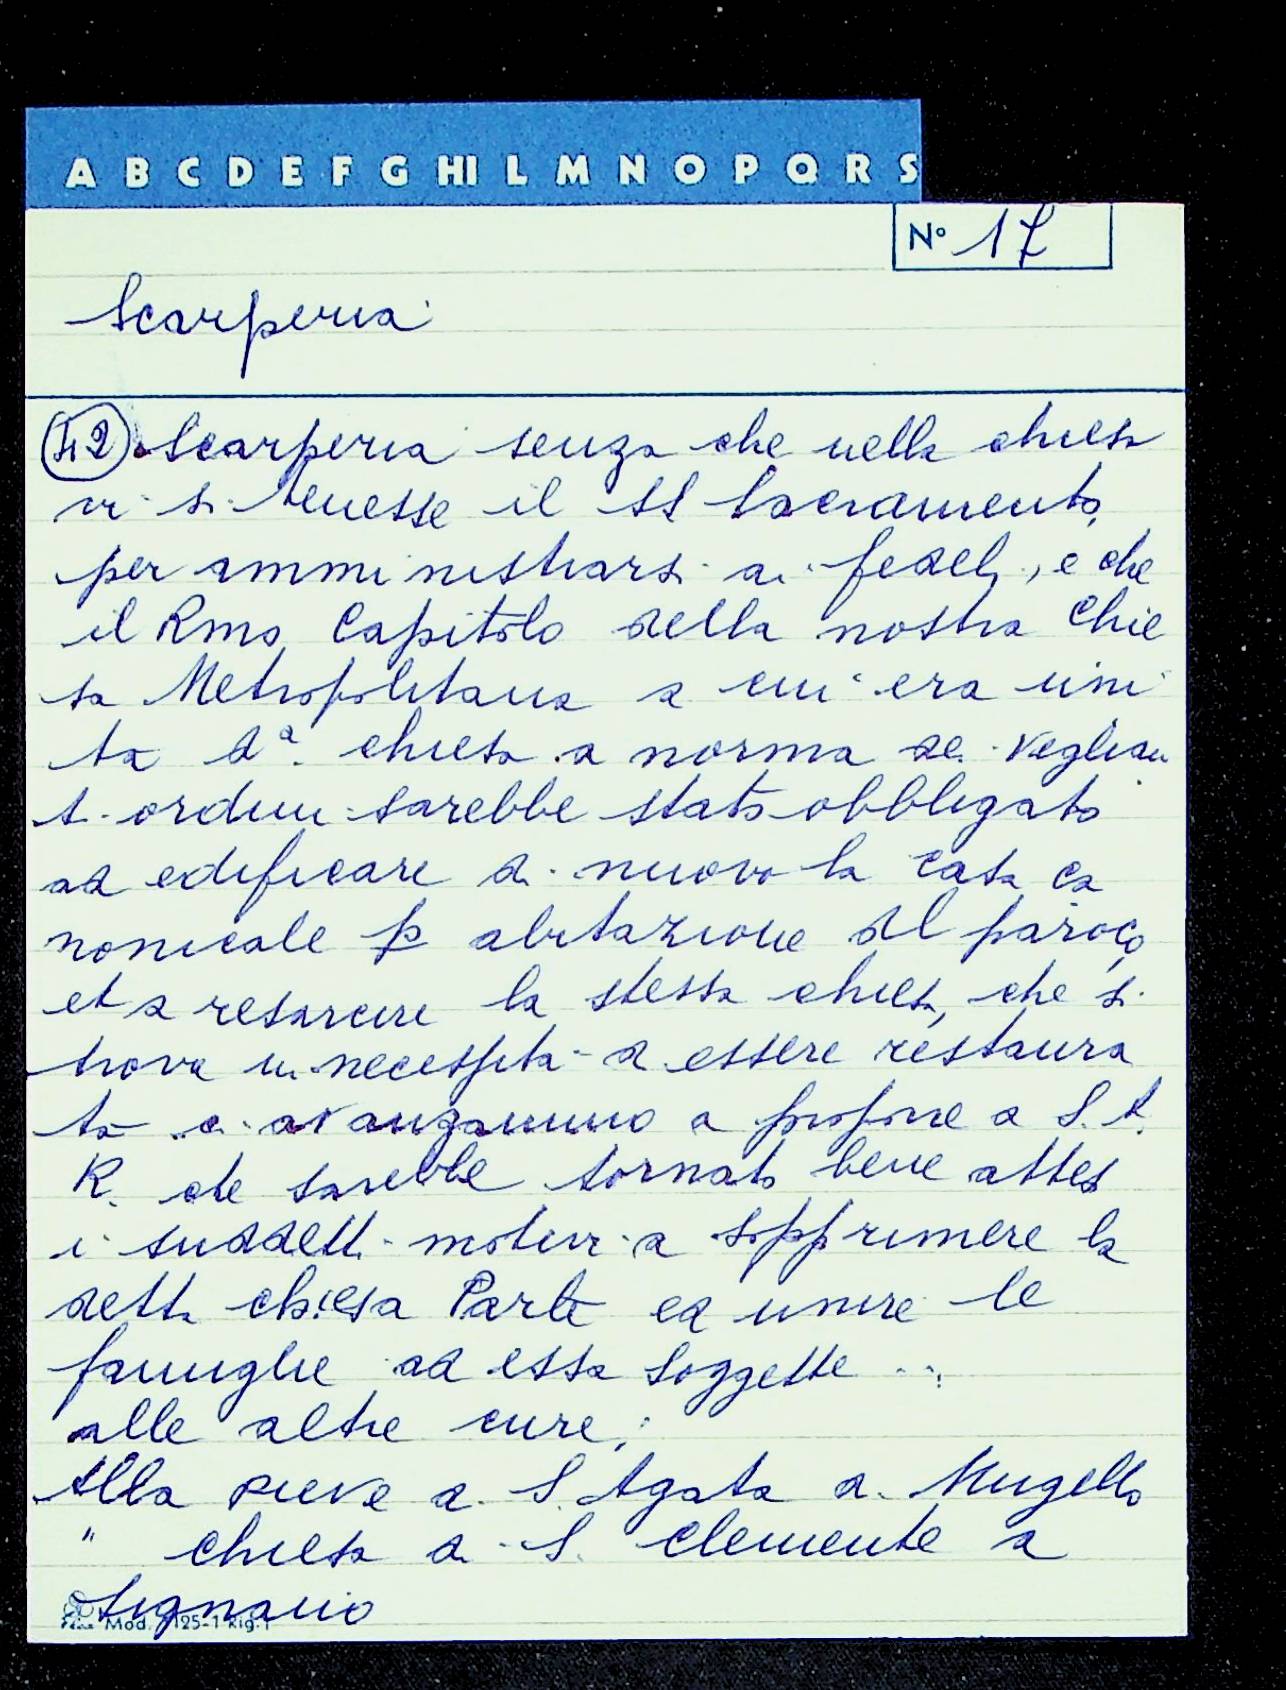 A B C D E F G HI L M N O P Q R S
N° 17
Scarperia
42 Scarperia senza che nella chiesa
vi si tenesse il SS Sacramento
per amministrarsi ai fedeli, e che
il Rmo Capitolo della nostra Chie
sa Metropolitana a cui era uni
ta da. chiesa a norma de veglian
ti ordini sarebbe stato obbligato
ad edificare di nuovo la casa ca
nonicale p abitazione del paroco,
et a resarcire la stessa chiesa, che si
trova in necessita di essere restaura
ta ci avanzammo a proporre a S. A.
R. che sarebbe tornato bene attesi
i suddetti motivi a sopprimere la
detta chiesa Parle ed unire le
famiglie ad essa soggette ...
alle altre cure;
Alla pieve di S. Agata a Mugello
" chiesa di S. Clemente a
Signano
Mod. 125-1 Rig.1